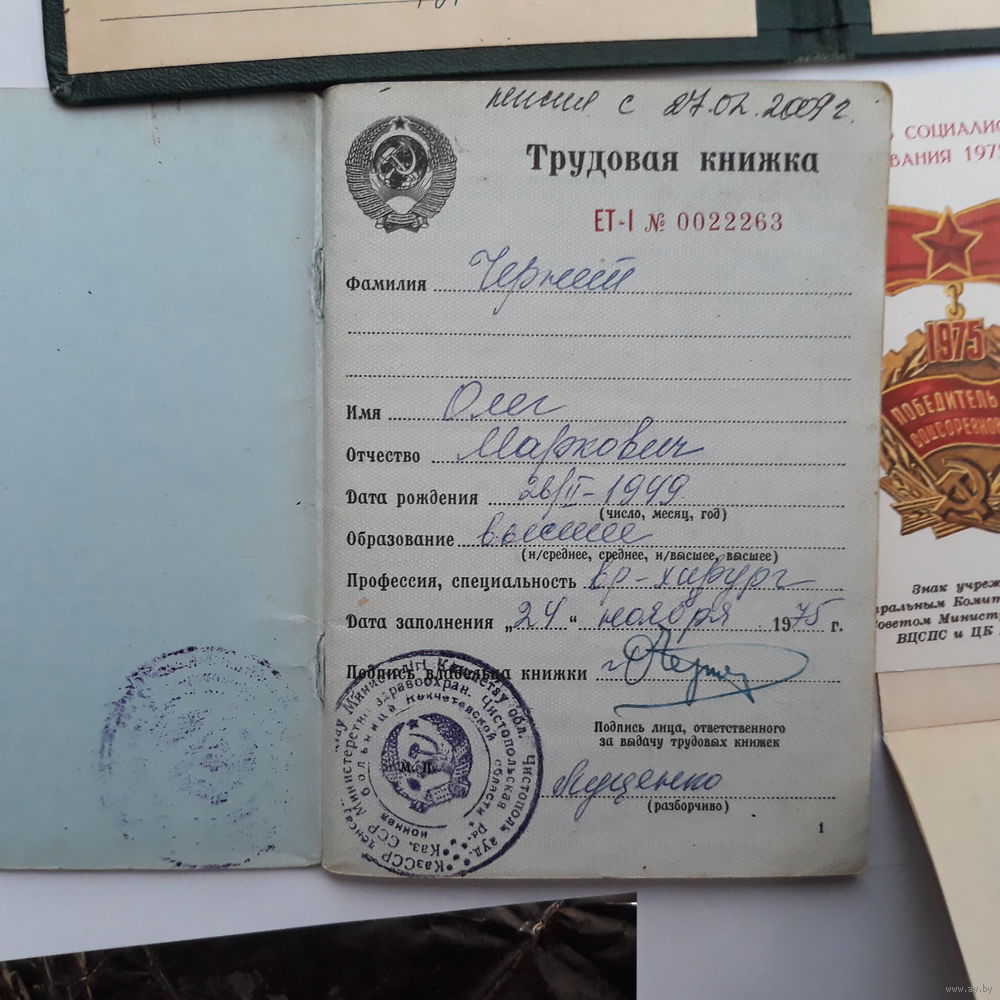 пенсия с 27.02.2009 г.
Трудовая книжка
ЕТ-I № 0022263
Фамилия
Имя Олег
Отчество Маркович
Дата рождения 26/II-1949
(число, месяц, год)
Образование высшее
(н/среднее, среднее, н/высшее, высшее)
Профессия, специальность вр-хирург
Дата заполнения „24“ ноября 1975 г.
Подпись владельца книжки
Подпись лица, ответственного
за выдачу трудовых книжек
М. П.
(разборчиво)
1
Министерство здравоохран. Чистопольская
больница Кокчетавской области
Каз. ССР
КазССР
Чистополь ауд.
СОЦИАЛИС
ВАНИЯ 197
1975
ПОБЕДИТЕЛЬ
СОЦСОРЕВНОВ
Знак учреж
ральным Комит
Советом Министр
ВЦСПС и ЦК
www.ay.by